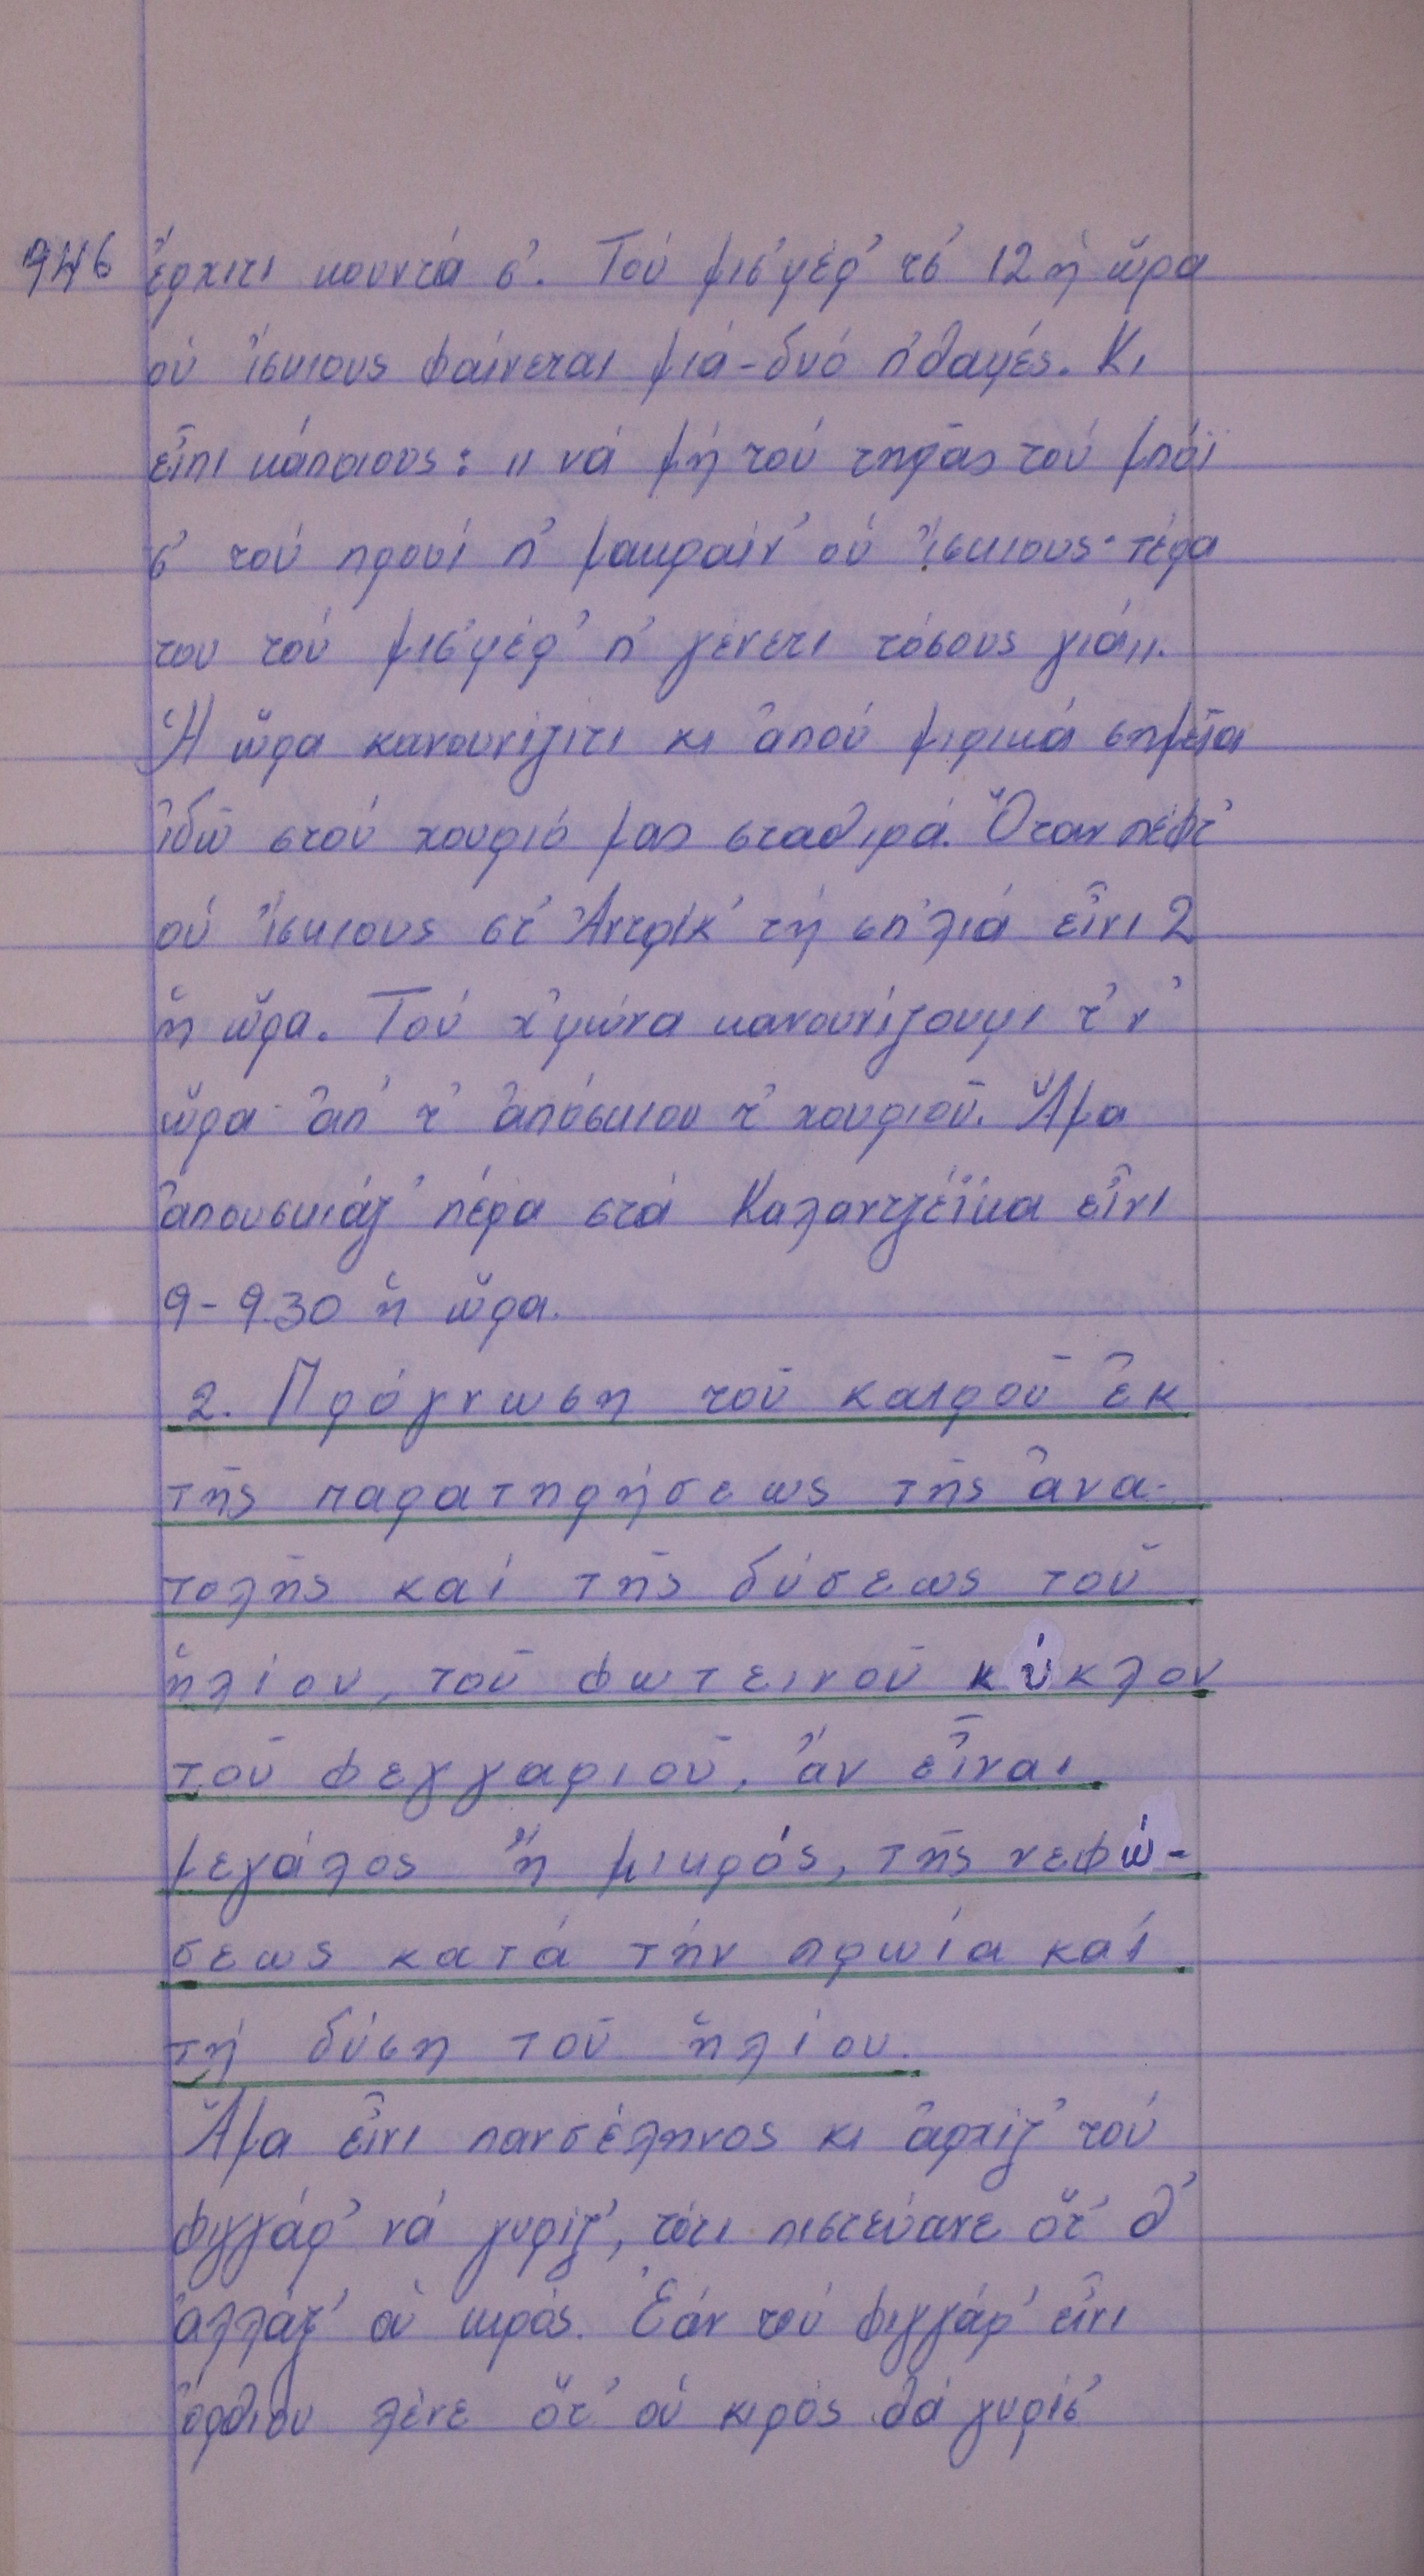 946 ἔρχιτι κουντά σ'. Τού μισ'μέρ' τσ' 12 ἡ ὥρα
οὑ ἴσκιους φαίνεται μιά-δυό π'θαμές. Κι
εἶπι κάποιους: "νά μή τού τηρᾶς τού μπόϊ
σ' τού προυί π' μακραίν' οὑ ἴσκιους· τέρα
του τού μισ'μέρ' π' γένετι τόσους γιά".
Ἡ ὥρα κανουνίζιτι κι ἀπού μιρικά σημεῖα
ἰδῶ στού χουριό μας σταθιρά. Ὅταν πέφτ'
οὑ ἴσκιους στ' Ἀντρίκ' τή σπ'λιά εἶνι 2
ἡ ὥρα. Τού χ'μώνα κανουνίζουμι τ'ν
ὥρα ἀπ' τ' ἀπόσκιου τ' χουριοῦ. Ἅμα
ἀπουσκιάζ' πέρα στά Καλαντζέϊκα εἶνι
9-9.30 ἡ ὥρα.
2. Πρόγνωση τοῦ καιροῦ ἐκ
τῆς παρατηρήσεως τῆς ἀνα-
τολῆς καί τῆς δύσεως τοῦ
ἡλίου, τοῦ φωτεινοῦ κύκλου
τοῦ φεγγαριοῦ, ἄν εἶναι
μεγάλος ἤ μικρός, τῆς νεφώ-
σεως κατά τήν πρωία καί
τή δύση τοῦ ἡλίου.
Ἅμα εἶνι πανσέληνος κι ἀρχίζ' τού
φιγγάρ' νά γυρίζ', τότι πιστεύανε ὅτ' θ'
ἀλλάζ' οὑ κιρός. Ἐάν τού φιγγάρ' εἶνι
ὄρθιου λένε ὅτ' οὑ κιρός θά γυρίσ'